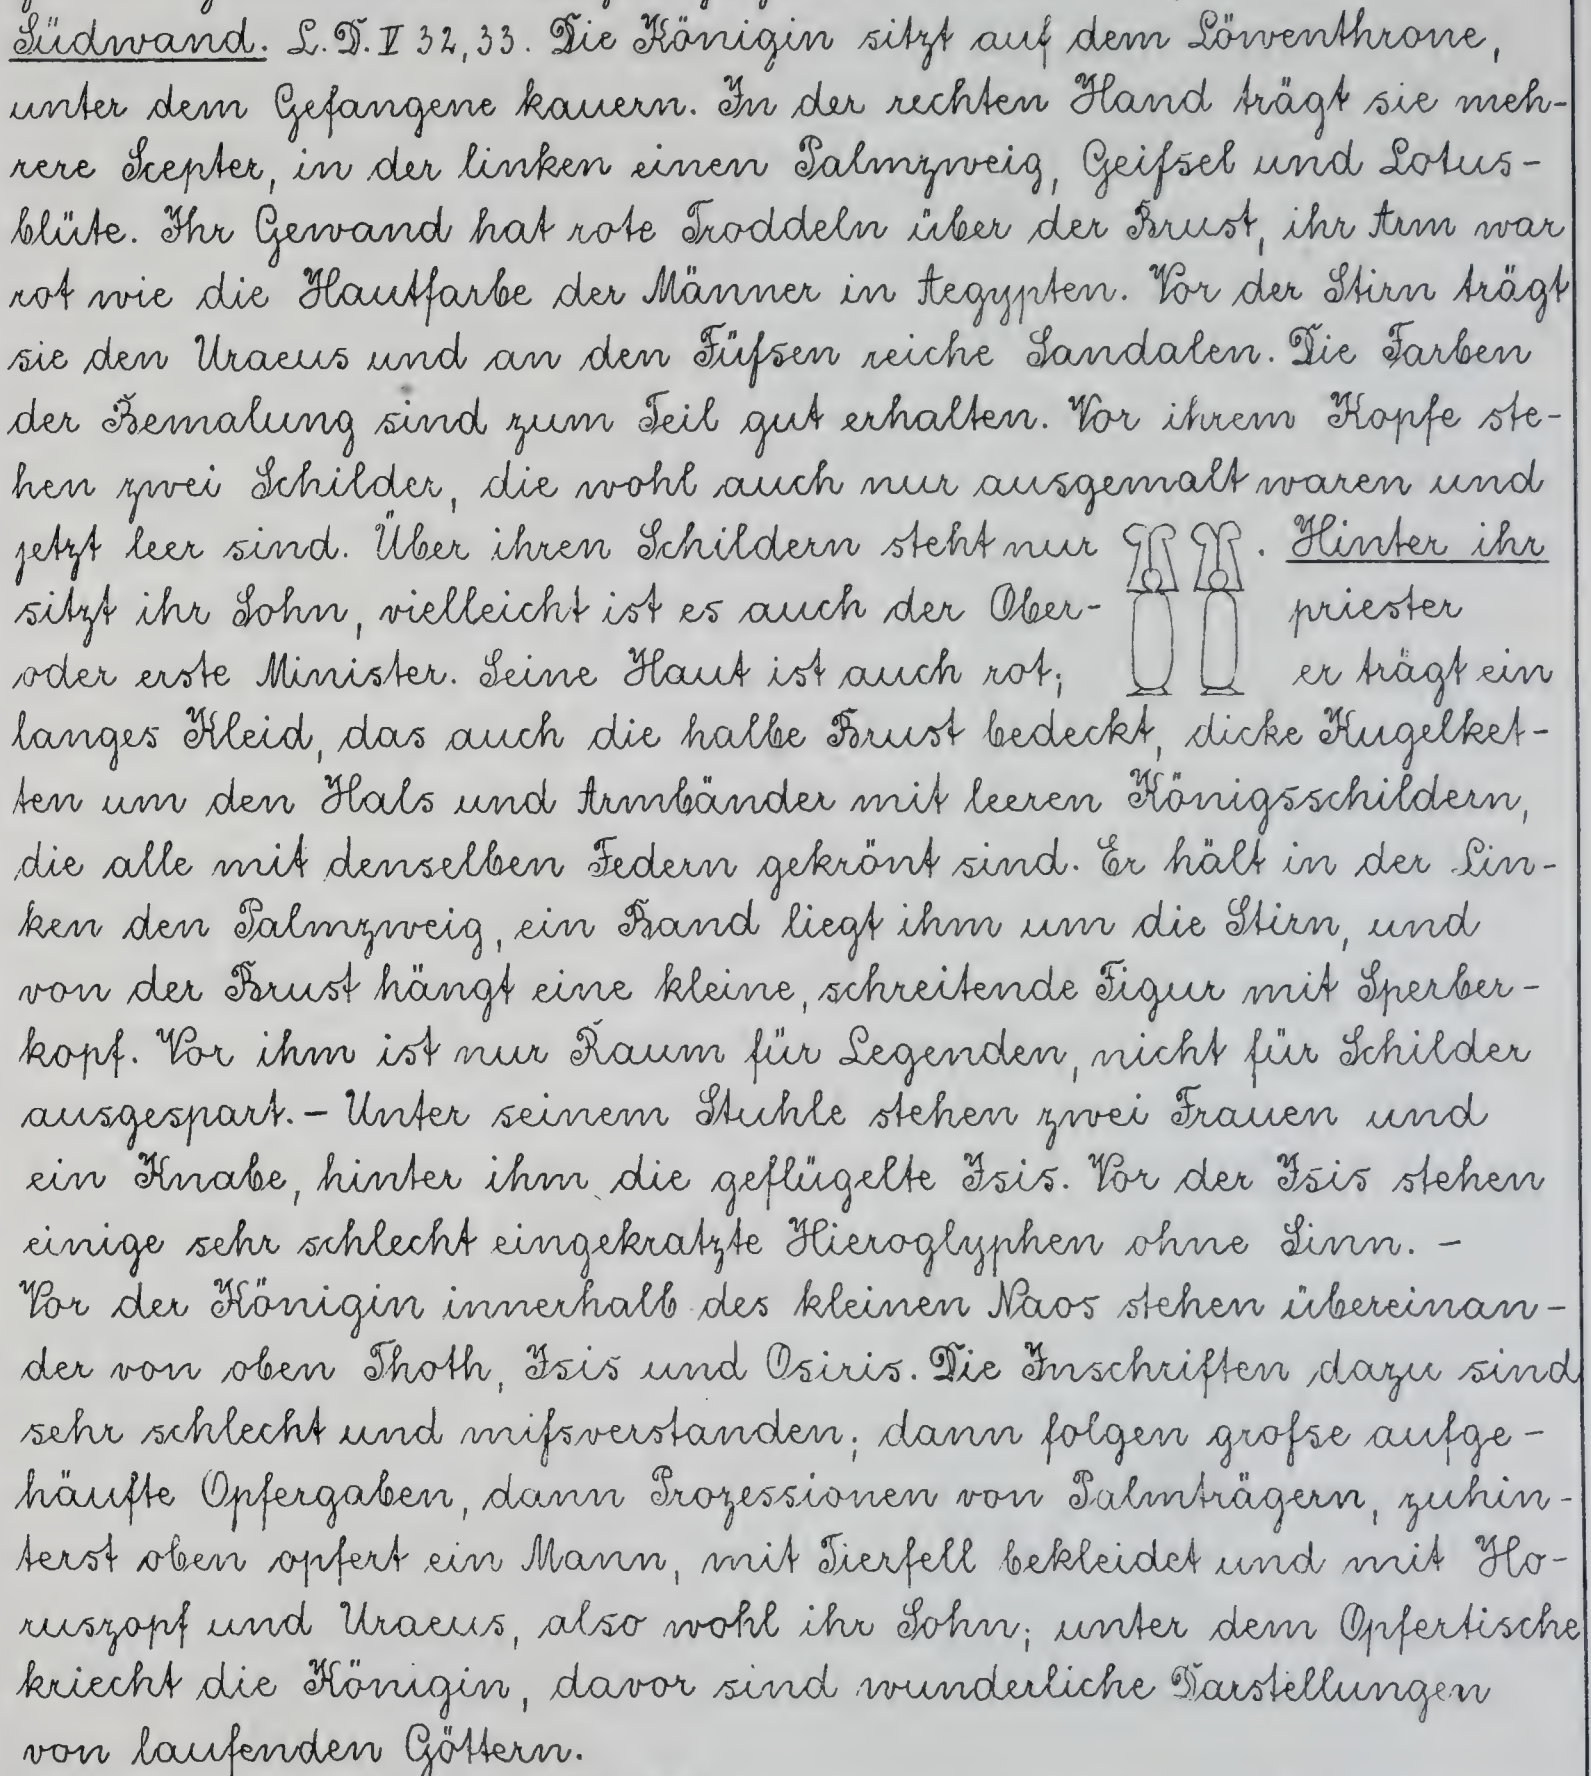 Südwand. L.D. V 32, 33. Die Königin sitzt auf dem Löwenthrone,
unter dem Gefangene kauern. In der rechten Hand trägt sie meh-
rere Scepter, in der linken einen Palmzweig, Geifsel und Lotus-
blüte. Ihr Gewand hat rote Troddeln über der Brust, ihr Arm war
rot wie die Hautfarbe der Männer in Aegypten. Vor der Stirn trägt
sie den Uraeus und an den Füfsen reiche Sandalen. Die Farben
der Bemalung sind zum Teil gut erhalten. Vor ihrem Kopfe ste-
hen zwei Schilder, die wohl auch nur ausgemalt waren und
jetzt leer sind. Über ihren Schildern steht nur . Hinter ihr
sitzt ihr Sohn, vielleicht ist es auch der Ober- priester
oder erste Minister. Seine Haut ist auch rot; er trägt ein
langes Kleid, das auch die halbe Brust bedeckt, dicke Kugelket-
ten um den Hals und Armbänder mit leeren Königsschildern,
die alle mit denselben Federn gekrönt sind. Er hält in der Lin-
ken den Palmzweig, ein Band liegt ihm um die Stirn, und
von der Brust hängt eine kleine, schreitende Figur mit Sperber-
kopf. Vor ihm ist nur Raum für Legenden, nicht für Schilder
ausgespart. – Unter seinem Stuhle stehen zwei Frauen und
ein Knabe, hinter ihm die geflügelte Isis. Vor der Isis stehen
einige sehr schlecht eingekratzte Hieroglyphen ohne Sinn. –
Vor der Königin innerhalb des kleinen Naos stehen übereinan-
der von oben Thoth, Isis und Osiris. Die Inschriften dazu sind
sehr schlecht und mifsverstanden; dann folgen grofse aufge-
häufte Opfergaben, dann Prozessionen von Palmträgern, zuhin-
terst oben opfert ein Mann, mit Tierfell bekleidet und mit Ho-
ruszopf und Uraeus, also wohl ihr Sohn; unter dem Opfertische
kriecht die Königin, davor sind wunderliche Darstellungen
von laufenden Göttern.